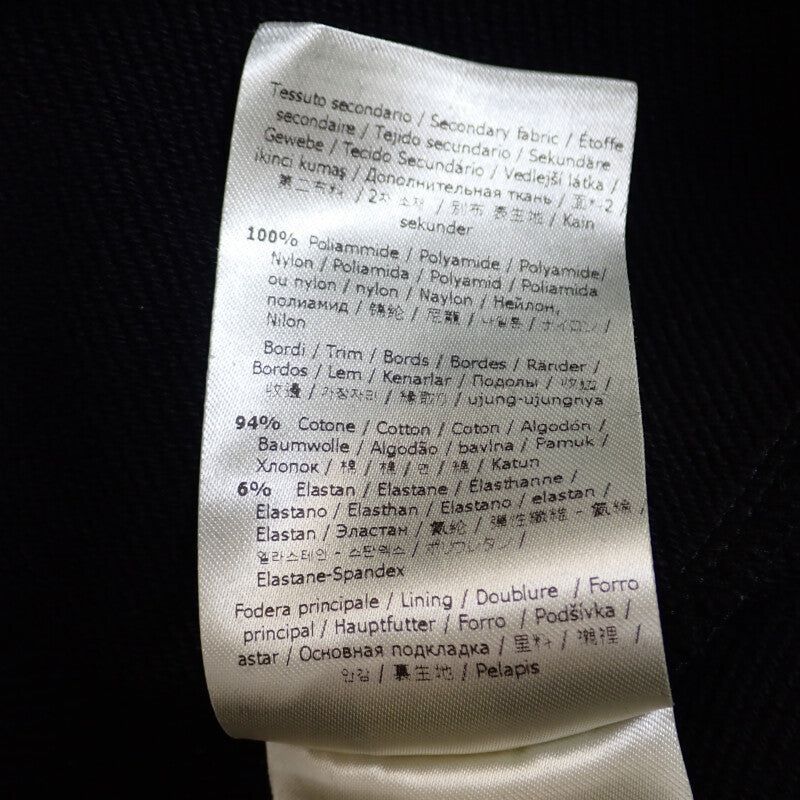 Tessuto secondario / Secondary fabric / Étoffe
secondaire / Tejido secundario / Sekundäre
Gewebe / Tecido Secundário / Vedlejší látka /
ikinci kumaş / Дополнительная ткань / 面料-2
第二布料 / 2차 소재 / 別布 表生地 / Kain
sekunder
100% Poliammide / Polyamide / Polyamide/
Nylon / Poliamida / Polyamid / Poliamida
ou nylon / nylon / Naylon / Нейлон,
полиамид / 锦纶 / 尼龍 / 나일론 / ナイロン /
Nilon
Bordi / Trim / Bords / Bordes / Ränder /
Bordos / Lem / Kenarlar / Подолы / /
收邊 / 가장자리 / 縁取り / ujung-ujungnya
94% Cotone / Cotton / Coton / Algodón /
Baumwolle / Algodão / bavlna / Pamuk /
Хлопок / 棉 / 棉 / 면 / 綿 / Katun
6% Elastan / Elastane / Élasthanne /
Elastano / Elasthan / Elastano / elastan /
Elastan / Эластан / 氨纶 / 彈性纖維 - 氨綸 /
엘라스테인 - 스판덱스 / ポリウレタン /
Elastane-Spandex
Fodera principale / Lining / Doublure / Forro
principal / Hauptfutter / Forro / Podšívka /
astar / Основная подкладка / 里料 / 襯裡 /
안감 / 裏生地 / Pelapis